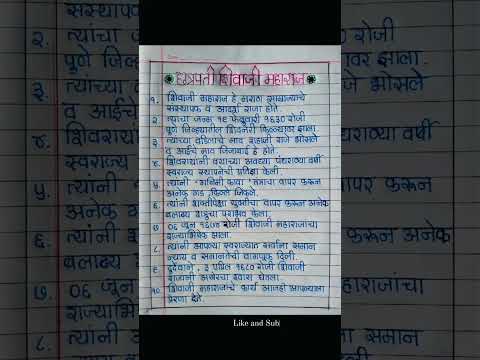 छत्रपती शिवाजी महाराज
१. शिवाजी महाराज हे मराठा साम्राज्याचे
संस्थापक व आदर्श राजा होते.
२. त्यांचा जन्म १९ फेब्रुवारी १६३० रोजी
पुणे जिल्ह्यातील शिवनेरी किल्ल्यावर झाला.
३. त्यांच्या वडिलांचे नाव शहाजी राजे भोसले
व आईचे नाव जिजाबाई हे होते.
४. शिवरायांनी वयाच्या अवघ्या पंधराव्या वर्षी
स्वराज्य स्थापनेची प्रतिज्ञा केली.
५. त्यांनी 'गनिमी कावा' तंत्राचा वापर करून
अनेक गड, किल्ले जिंकले.
६. त्यांनी शक्तीपेक्षा युक्तीचा वापर करून अनेक
बलाढ्य शत्रूंचा पराभव केला.
७. ०६ जून १६७४ रोजी शिवाजी महाराजांचा
राज्याभिषेक झाला.
८. त्यांनी आपल्या स्वराज्यात सर्वांना समान
न्याय व समानतेची वागणूक दिली.
९. दुर्दैवाने, ३ एप्रिल १६८० रोजी शिवाजी
राजांनी अखेरचा श्वास घेतला.
१०. शिवाजी महाराजांचे कार्य आजही आपल्याला
प्रेरणा देते.
Like and Sub